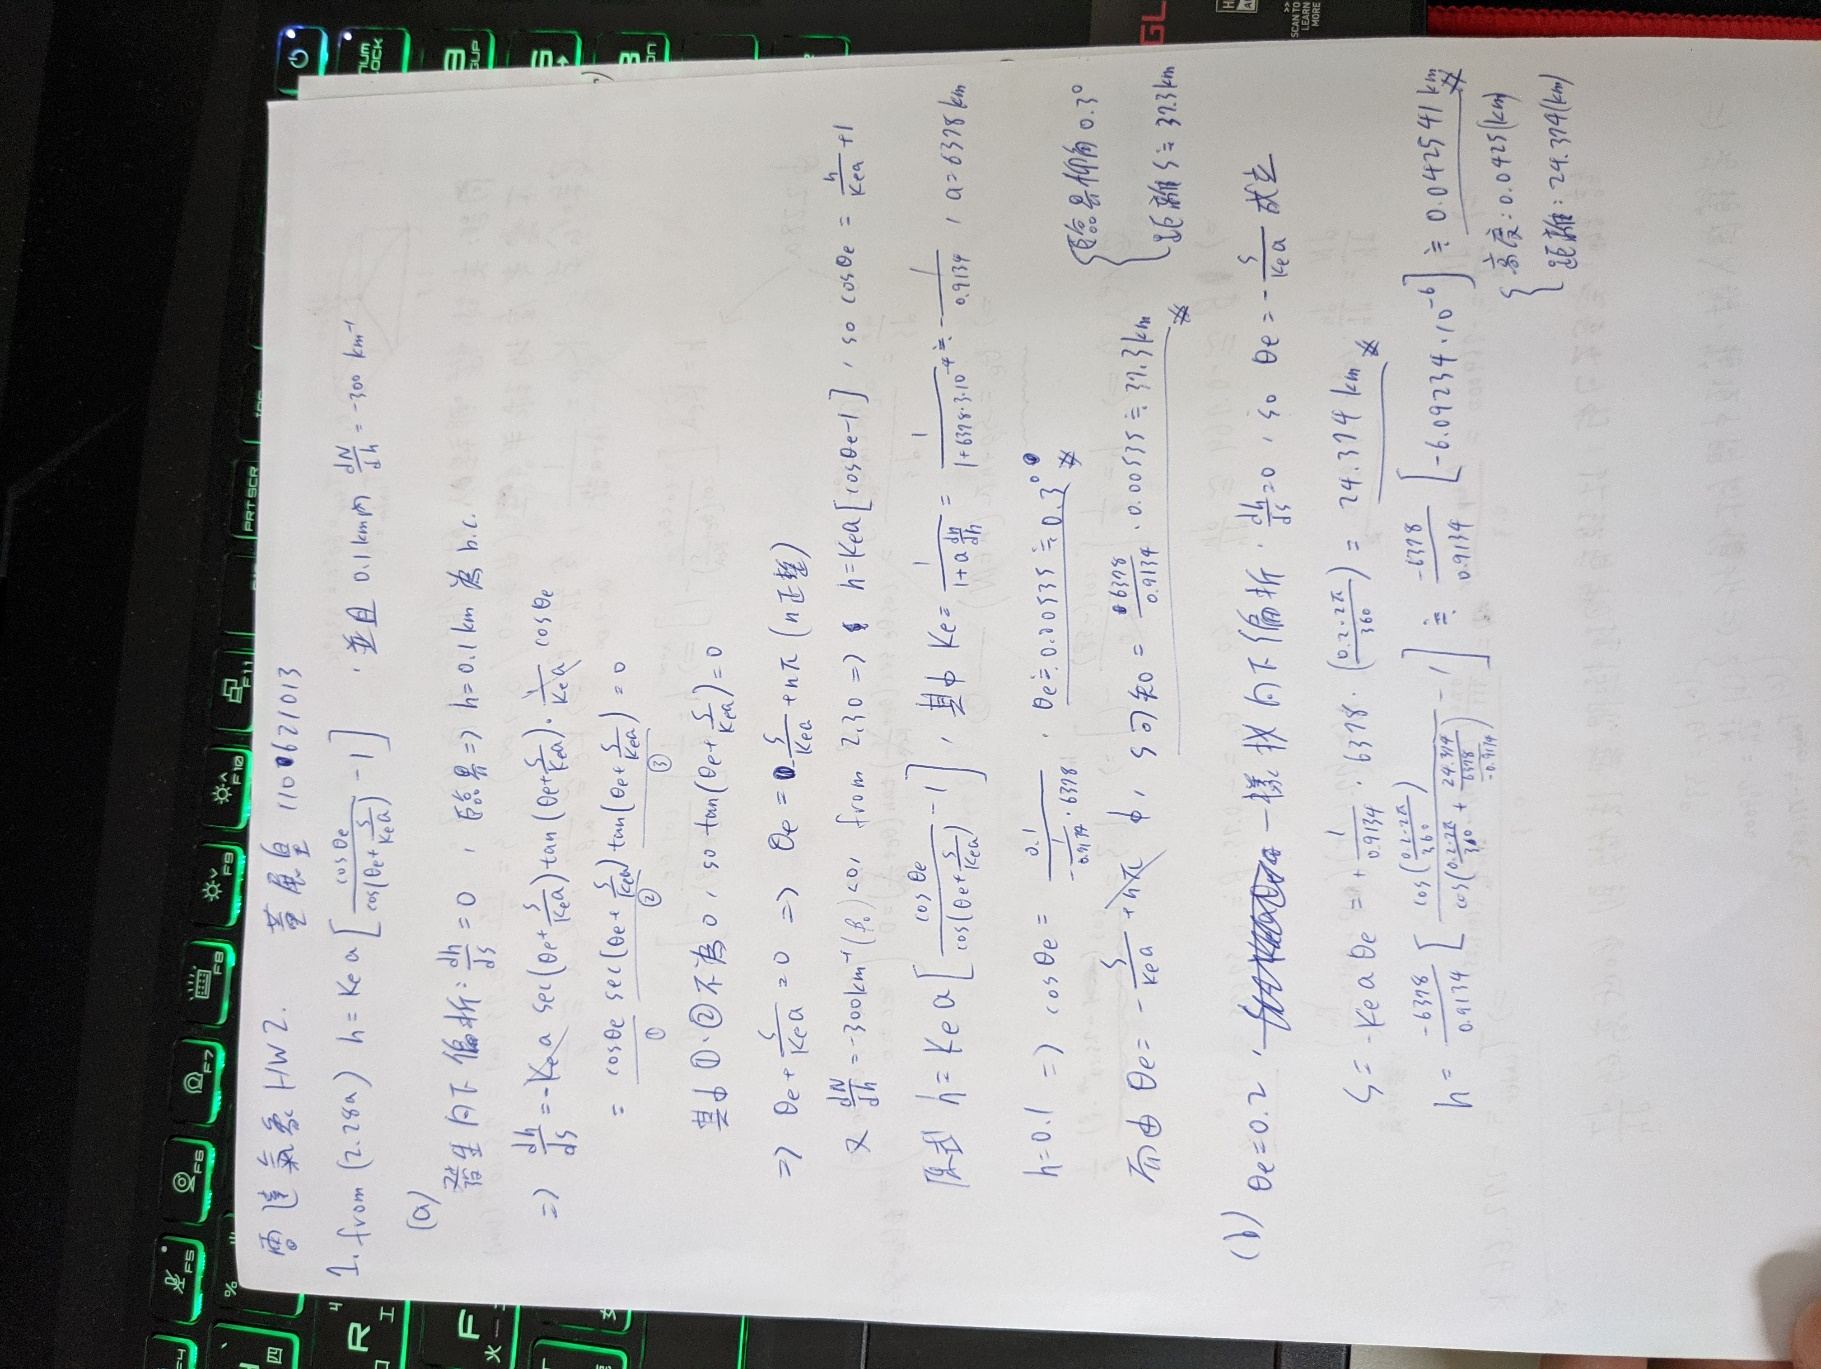 雷達氣象 HW2. 110621013
1. from (2.28a) h = kea [ cosθe / cos(θe + s/kea) - 1 ] , 並且 0.1km內 dN/dh = -300 km⁻¹
(a)
發生向下偏折: dh/ds = 0 , 臨界 => h = 0.1 km 為 b.c.
=> dh/ds = -kea sec(θe + s/kea) tan(θe + s/kea) · 1/kea cosθe
= cosθe sec(θe + s/kea) tan(θe + s/kea) = 0
① ② ③
其中 ①、② 不為 0 , so tan(θe + s/kea) = 0
=> θe + s/kea = 0 => θe = -s/kea + nπ (n正整)
又 dN/dh = -300km⁻¹ (β.) <0, from 2.30 => h = kea [cosθe - 1] , so cosθe = h/kea + 1
原式 h = kea [ cosθe / cos(θe + s/kea) - 1 ] , 其中 ke = 1/(1 + a dn/dh) = 1/(1 + 6378·3·10⁻⁴) ≒ - 1/0.9134 , a = 6378 km
h = 0.1 => cosθe = 0.1 / (- 1/0.9134 · 6378) , θe ≒ 0.00535 ≒ 0.3°
而由 θe = - s/kea + nπ 中, s可知 = 6378/0.9134 · 0.00535 ≒ 37.3 km
{ 臨界仰角 0.3°
距離 s ≒ 37.3 km
(b) θe = 0.2 , 一樣找向下偏折, dh/ds = 0 , so θe = - s/kea 成立
s = -kea θe = + 1/0.9134 · 6378 · (0.2·2π/360) = 24.374 km
h = -6378/0.9134 [ cos(0.2·2π/360) / cos(0.2·2π/360 + 24.374/(6378/-0.9134)) - 1 ] ≒ -6378/0.9134 [ -6.09234·10⁻⁶ ] ≒ 0.042541 km
{ 高度: 0.0425 (km)
距離: 24.374 (km)
PRT SCR
F11
F10
F9
F8
F7
F6
F5
F4
%
R
F
SCAN TO LEARN MORE